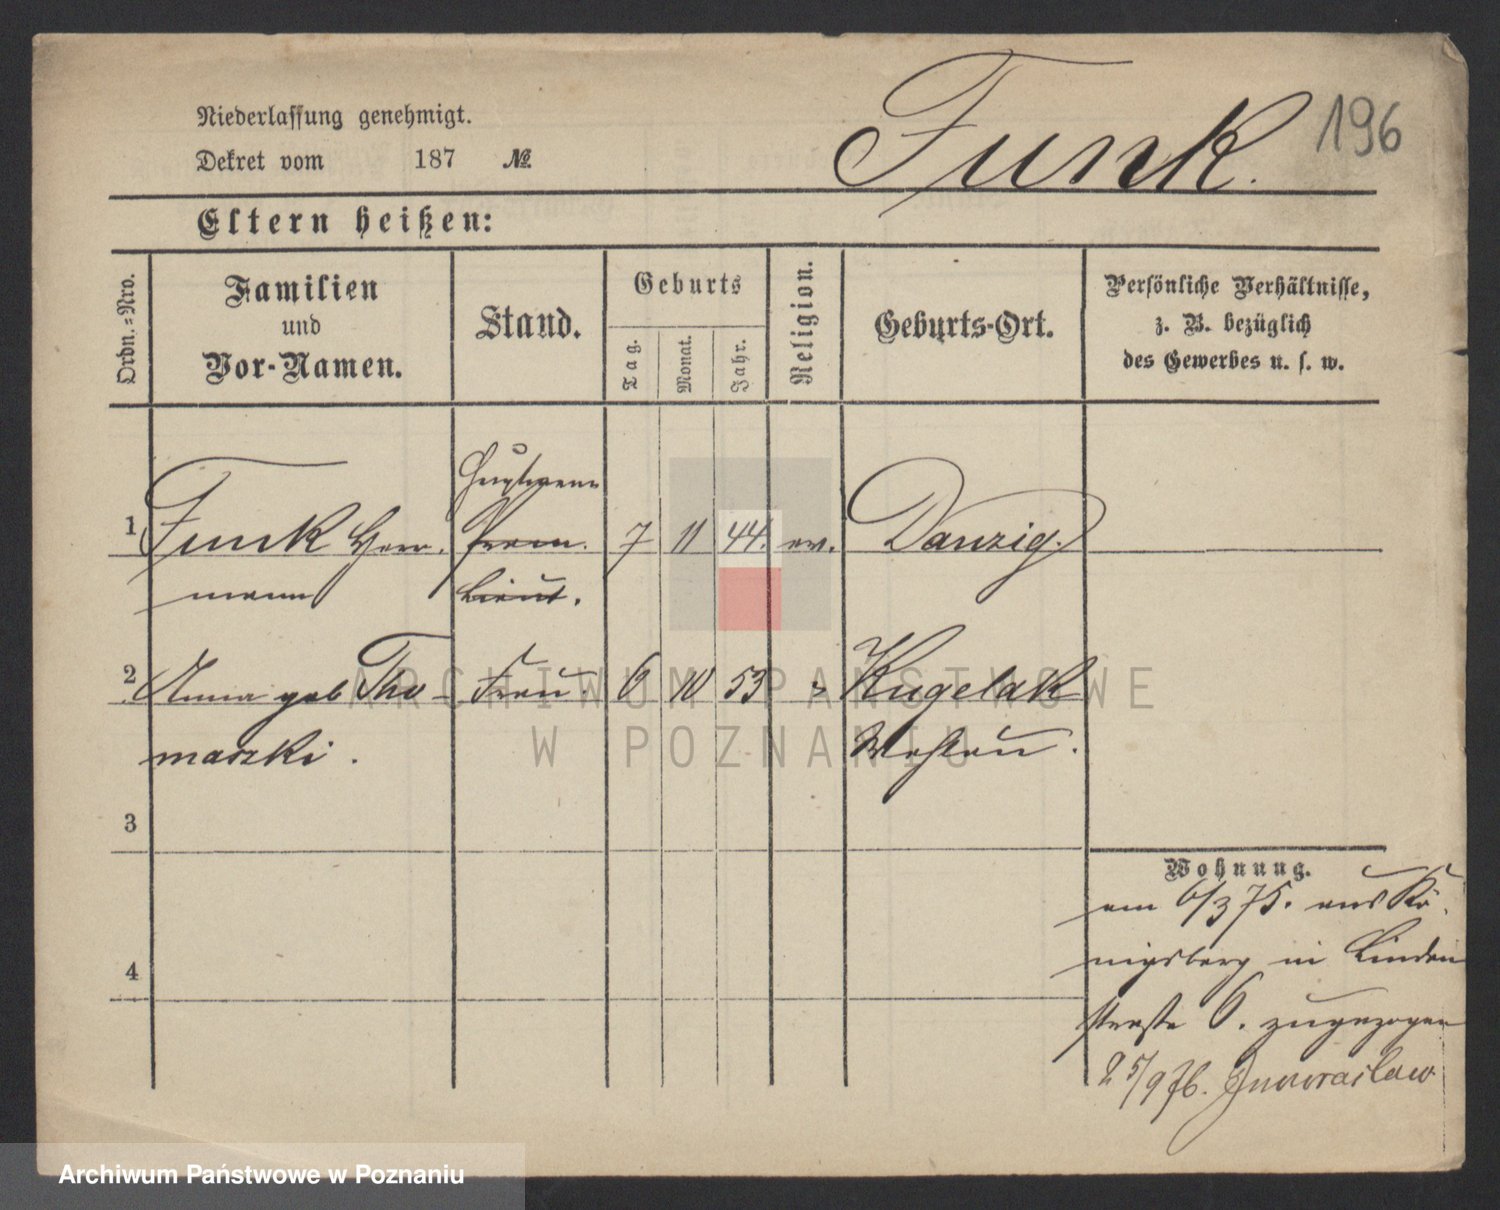 Niederlassung genehmigt.
Dekret vom 187 №
Funk. 196
Eltern heißen:
Ordn.=Nro.
Familien
und
Vor-Namen.
Stand.
Geburts
Tag.
Monat.
Jahr.
Religion.
Geburts-Ort.
Persönliche Verhältnisse,
z. B. bezüglich
des Gewerbes u. s. w.
Hauptmann
1 Funk Herr- Prem. 7 11 44. ev. Danzig.
mann Lieut.
2 Anna geb Tho- Frau. 6 10 53 " Kugelak
maszki.
3
4
Wohnung.
am 6/3 75. aus Kö-
nigsberg in Linden
straße 6. zugezogen
25/9 76. Inowraclaw
ARCHIWUM PAŃSTWOWE
W POZNANIU
Archiwum Państwowe w Poznaniu